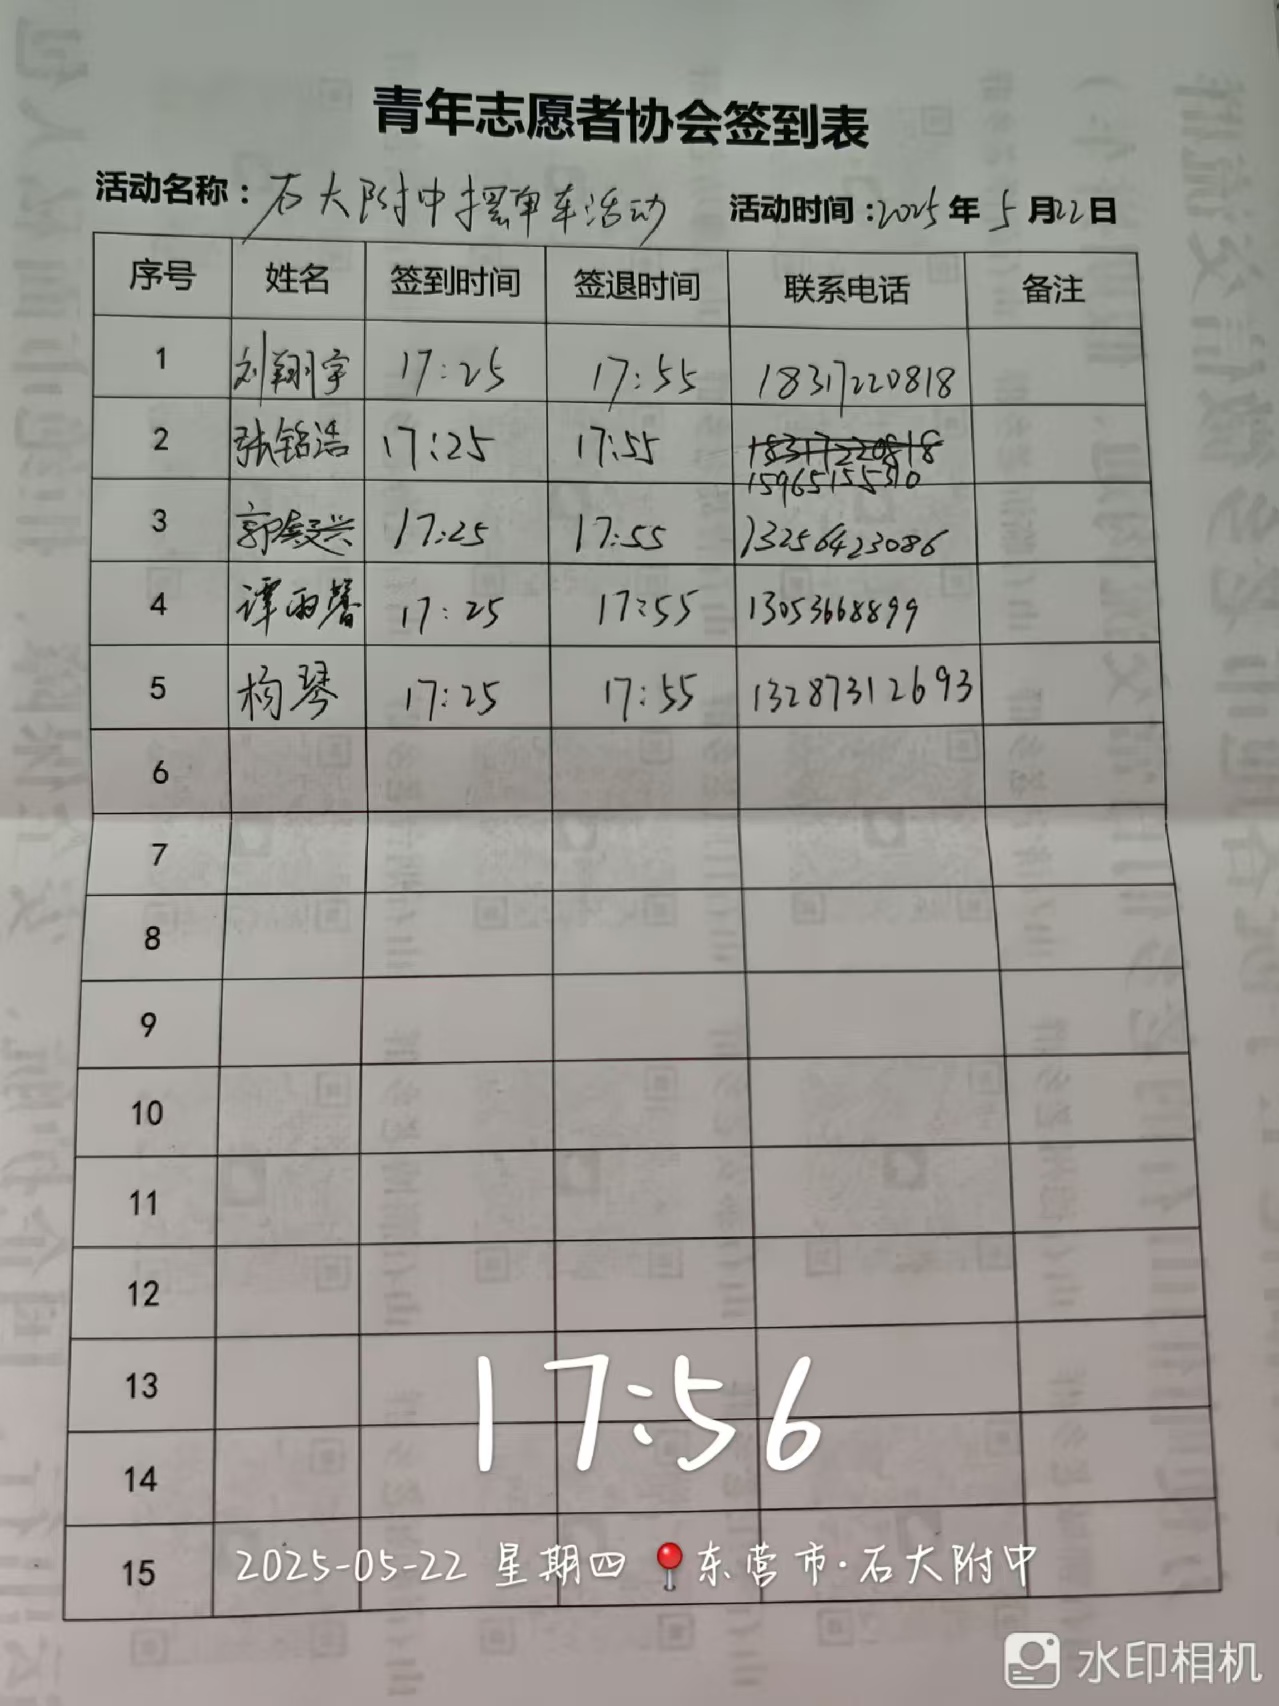 青年志愿者协会签到表
活动名称：石大附中摆单车活动 活动时间：2025年5月22日
序号 姓名 签到时间 签退时间 联系电话 备注
1 刘翔宇 17:25 17:55 18317220818
2 张铭浩 17:25 17:55 18317220818
15965155510
3 郭 兴 17:25 17:55 13256423086
4 谭雨馨 17:25 17:55 13053668899
5 杨琴 17:25 17:55 13287312693
6
7
8
9
10
11
12
13
14
15
17:56
2025-05-22 星期四 东营市·石大附中
水印相机